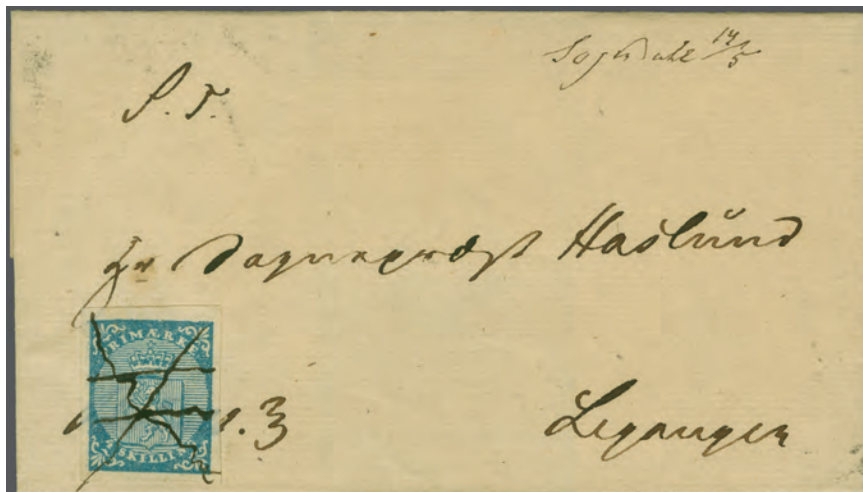 Sogndahl 14/5
S. T.
Hr Sognepræst Haslund
FRIMÆRKE
4 SKILLING
1.3
Leganger